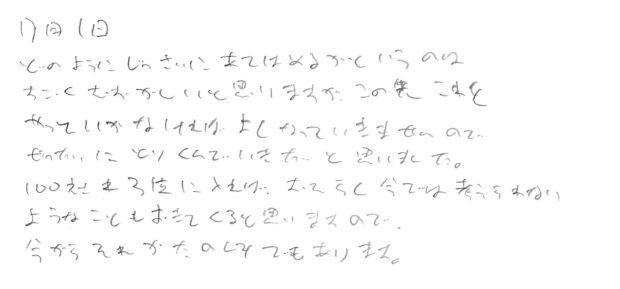 日 1日
どのようにじっさいに あてはめるかというのは
すごくむずかしいと思いますが この先 これを
やっていかなければ よくなっていきませんので
ぜったいに とりくんでいきたい と思いました。
100 3位に おそらく今では考えられない
ようなことも おきてくると思いますので、
今からそれがたのしみでもあります。